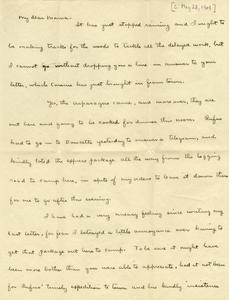 [c. May 23, 1909]
My dear Mama:
It has just stopped raining and I ought to
be making tracks for the woods to tackle all the delayed work, but
I cannot go without dropping you a line in answer to your
letter, which Connie has just brought in from town.
Yes, the asparagus came, and moreover, they are
out here and going to be cooked for dinner this noon. Rufus
had to go in to Doucette yesterday to answer a telegram, and
kindly toted the express package all the way from the logging
road to camp here, in spite of my orders to leave it down there
for me to go after this evening.
I have had a very uneasy feeling since writing my
last letter, for fear I betrayed a little annoyance over having to
get that package out here to camp. To be sure it might have
been more bother than you were able to appreciate, had it not been
for Rufus' timely expedition to town and his kindly insistence